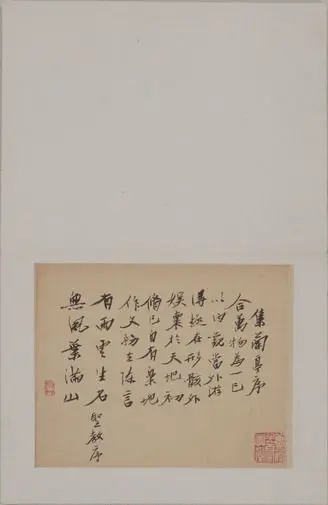 集蘭亭序
合萬物為一己
以内觀當外游
得趣在形骸外
娛懷於天地初
脩己自有樂地
作文去陳言
有雨雲生石 聖教序
無風葉滿山